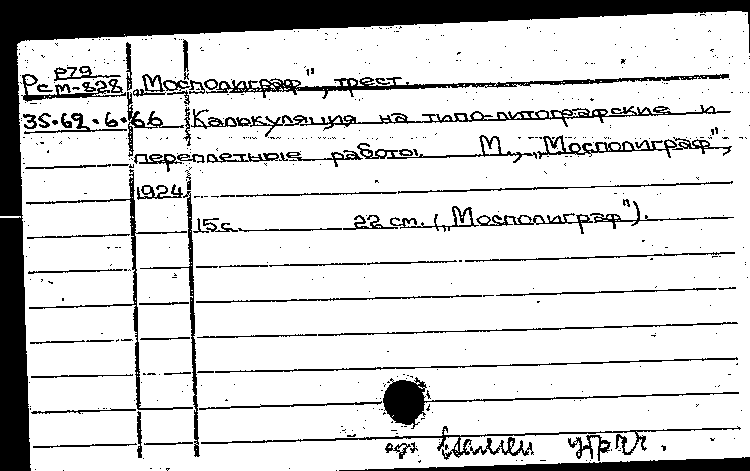 Рс Р79/М-828 „Мосполиграф", трест.
35.69.6.66 Калькуляция на типо-литографские и
переплетные работы. М., „Мосполиграф",
1924
15 с. 22 см. („Мосполиграф").
взамен утрач.